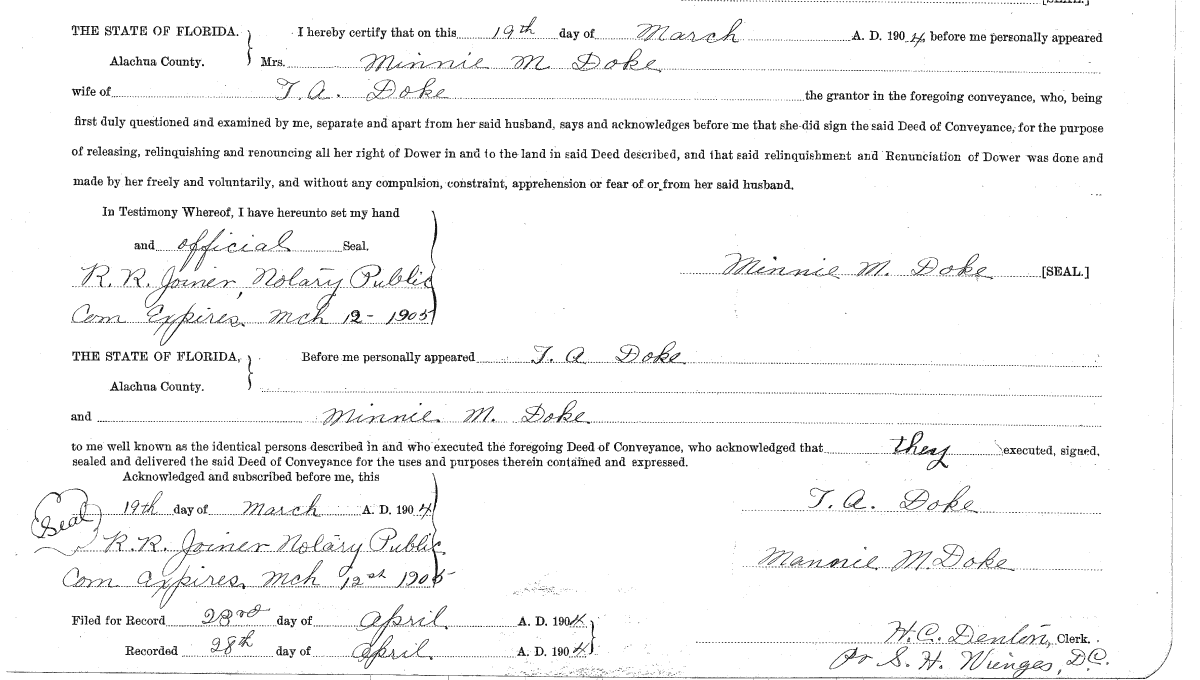 [SEAL.]
THE STATE OF FLORIDA. I hereby certify that on this 19th day of March A. D. 1904, before me personally appeared
Alachua County. Mrs. Minnie M Doke
wife of T. A. Doke the grantor in the foregoing conveyance, who, being
first duly questioned and examined by me, separate and apart from her said husband, says and acknowledges before me that she did sign the said Deed of Conveyance, for the purpose
of releasing, relinquishing and renouncing all her right of Dower in and to the land in said Deed described, and that said relinquishment and Renunciation of Dower was done and
made by her freely and voluntarily, and without any compulsion, constraint, apprehension or fear of or from her said husband.
In Testimony Whereof, I have hereunto set my hand
and official Seal.
R. R. Joiner, Notary Public
Minnie M. Doke [SEAL.]
Com Expires Mch 12 - 1905
THE STATE OF FLORIDA, Before me personally appeared T. A Doke
Alachua County.
and Minnie M. Doke
to me well known as the identical persons described in and who executed the foregoing Deed of Conveyance, who acknowledged that they executed, signed,
sealed and delivered the said Deed of Conveyance for the uses and purposes therein contained and expressed.
Acknowledged and subscribed before me, this
19th day of March A. D. 1904
T. A. Doke
Seal
R. R. Joiner Notary Public
Mannie M. Doke
Com Expires Mch 12th 1905
Filed for Record 23rd day of April A. D. 1904
H. C. Denton, Clerk.
Recorded 28th day of April. A. D. 1904
Pr S. H. Wienges, D.C.